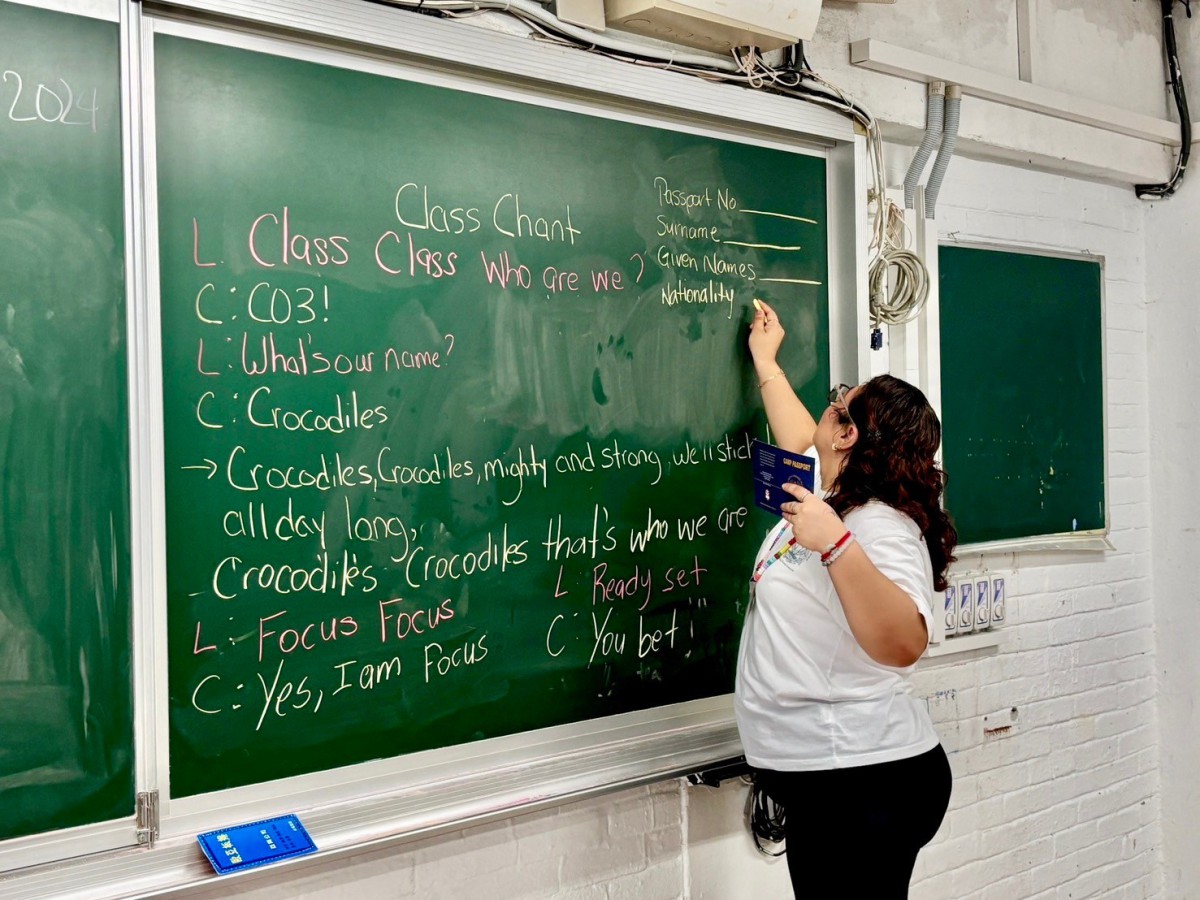 2024
Class Chant
L. Class Class Who are we?
C: C03!
L: What's our name?
C: Crocodiles
→ Crocodiles, Crocodiles, mighty and strong, we'll stick
all day long,
Crocodiles Crocodiles that's who we are
L: Ready set
L: Focus Focus
C: You bet!"
C: Yes, I am Focus
Passport No
Surname
Given Names
Nationality
CAMP PASSPORT